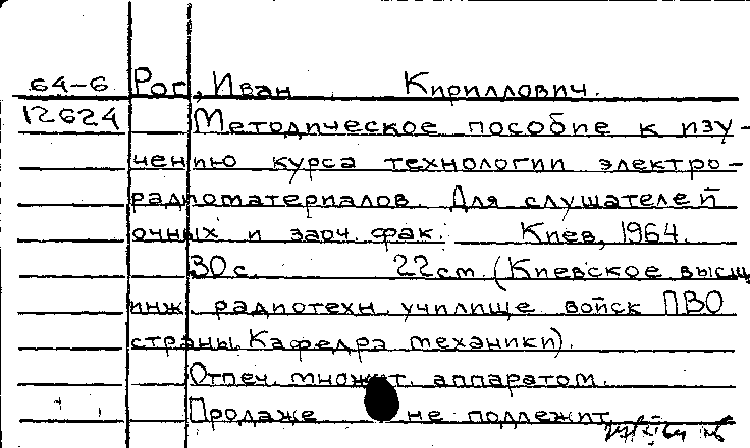 64-6 Рог, Иван Кириллович.
12624 Методическое пособие к изу-
чению курса технологии электро-
радиоматериалов. Для слушателей
очных и заоч. фак. Киев, 1964.
30 с. 22 см. (Киевское высш.
инж. радиотехн. училище войск ПВО
страны. Кафедра механики).
Отпеч. множит. аппаратом.
Продаже не подлежит